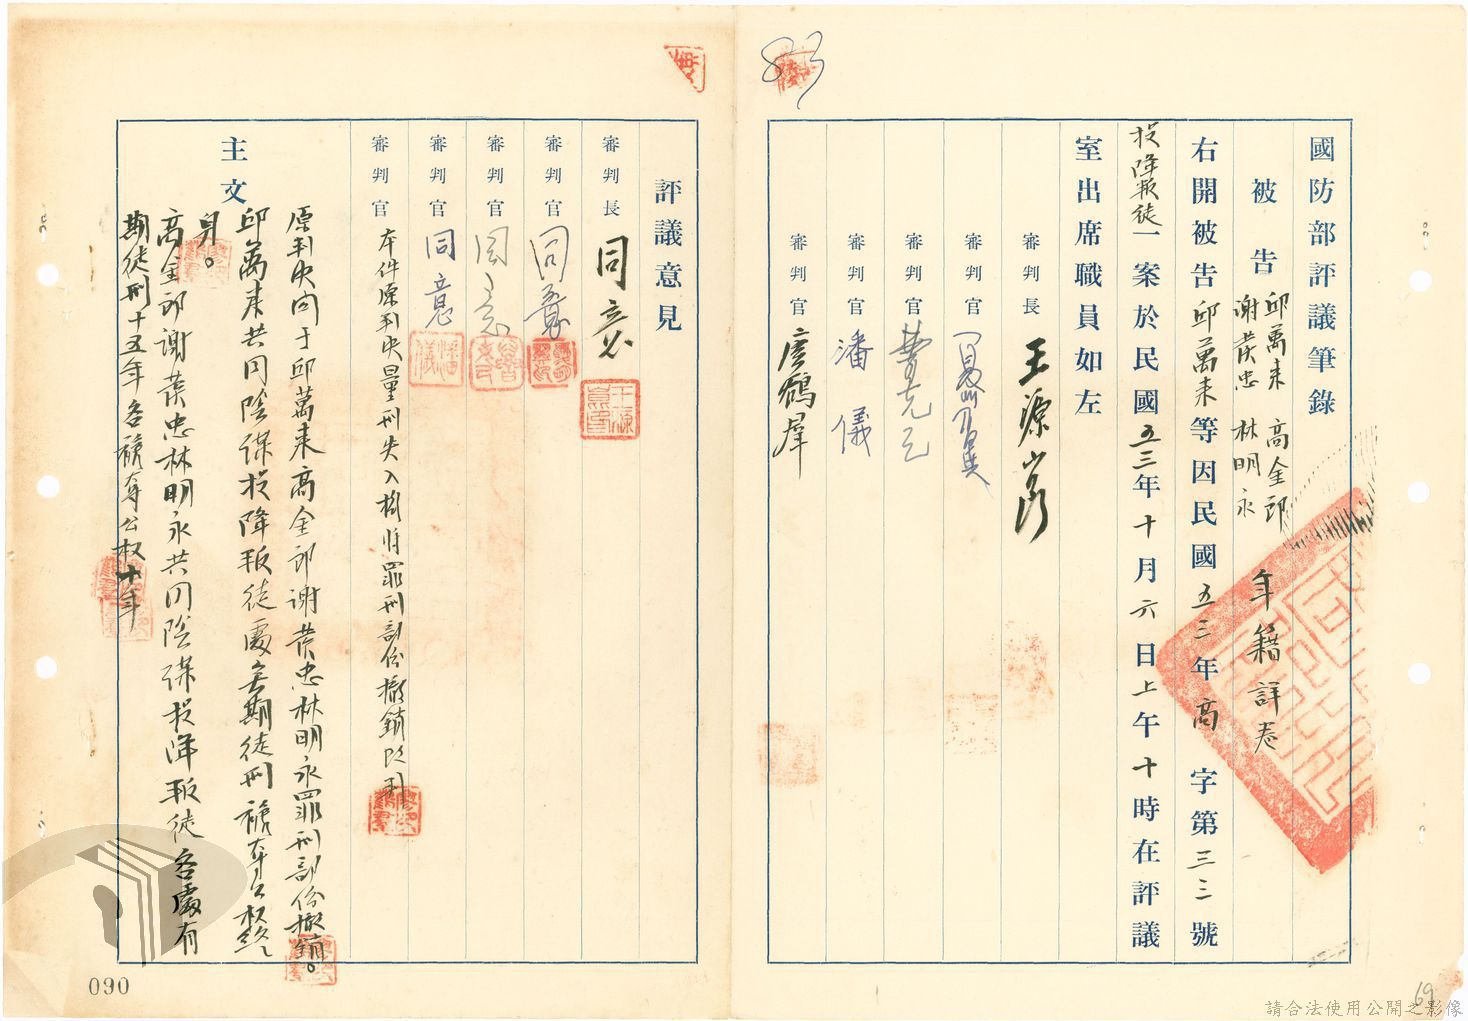 國防部評議筆錄
被告 邱萬來 高金郎
謝發忠 林明永 年籍詳卷
右開被告邱萬來等因民國五三年高字第三三號
投降叛徒一案於民國五三年十月六日上午十時在評議
室出席職員如左
審判長 王源
審判官
審判官 曹克
審判官 潘儀
審判官 鶴羣
評議意見
審判長 同意
審判官 同意
審判官 同意
審判官 同意
審判官 本件原判決量刑失入擬將罪刑部份撤銷改判
主文
原判決関于邱萬來高金郎謝發忠林明永罪刑部份撤銷。
邱萬來共同陰謀投降叛徒處無期徒刑褫奪公权終
身。
高金郎謝發忠林明永共同陰謀投降叛徒各處有
期徒刑十五年各褫奪公权十年
090
69
請合法使用公開之影像